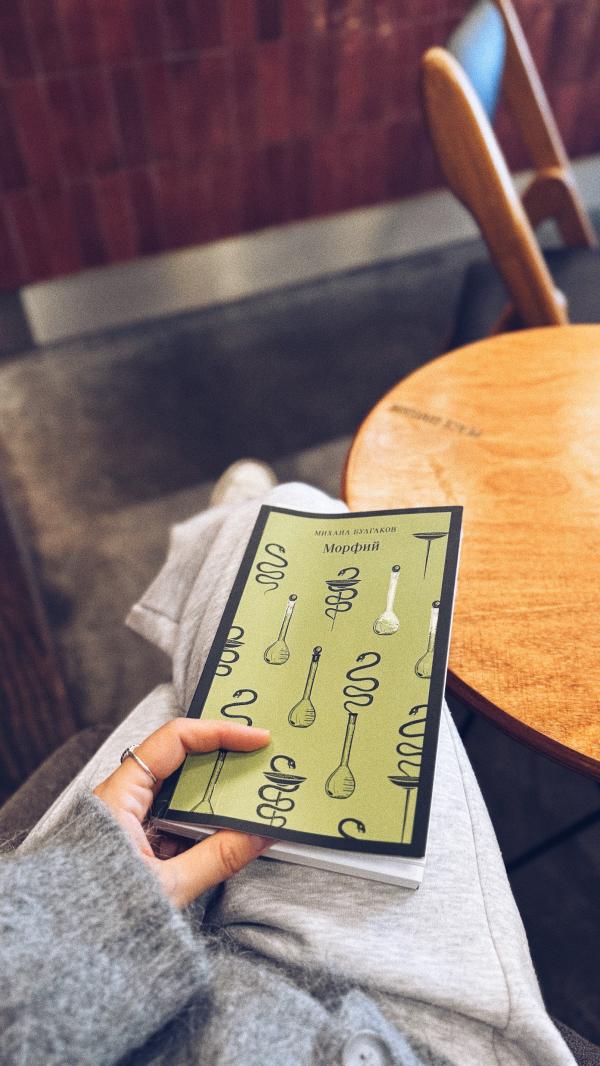 МИХАИЛ БУЛГАКОВ
Морфий